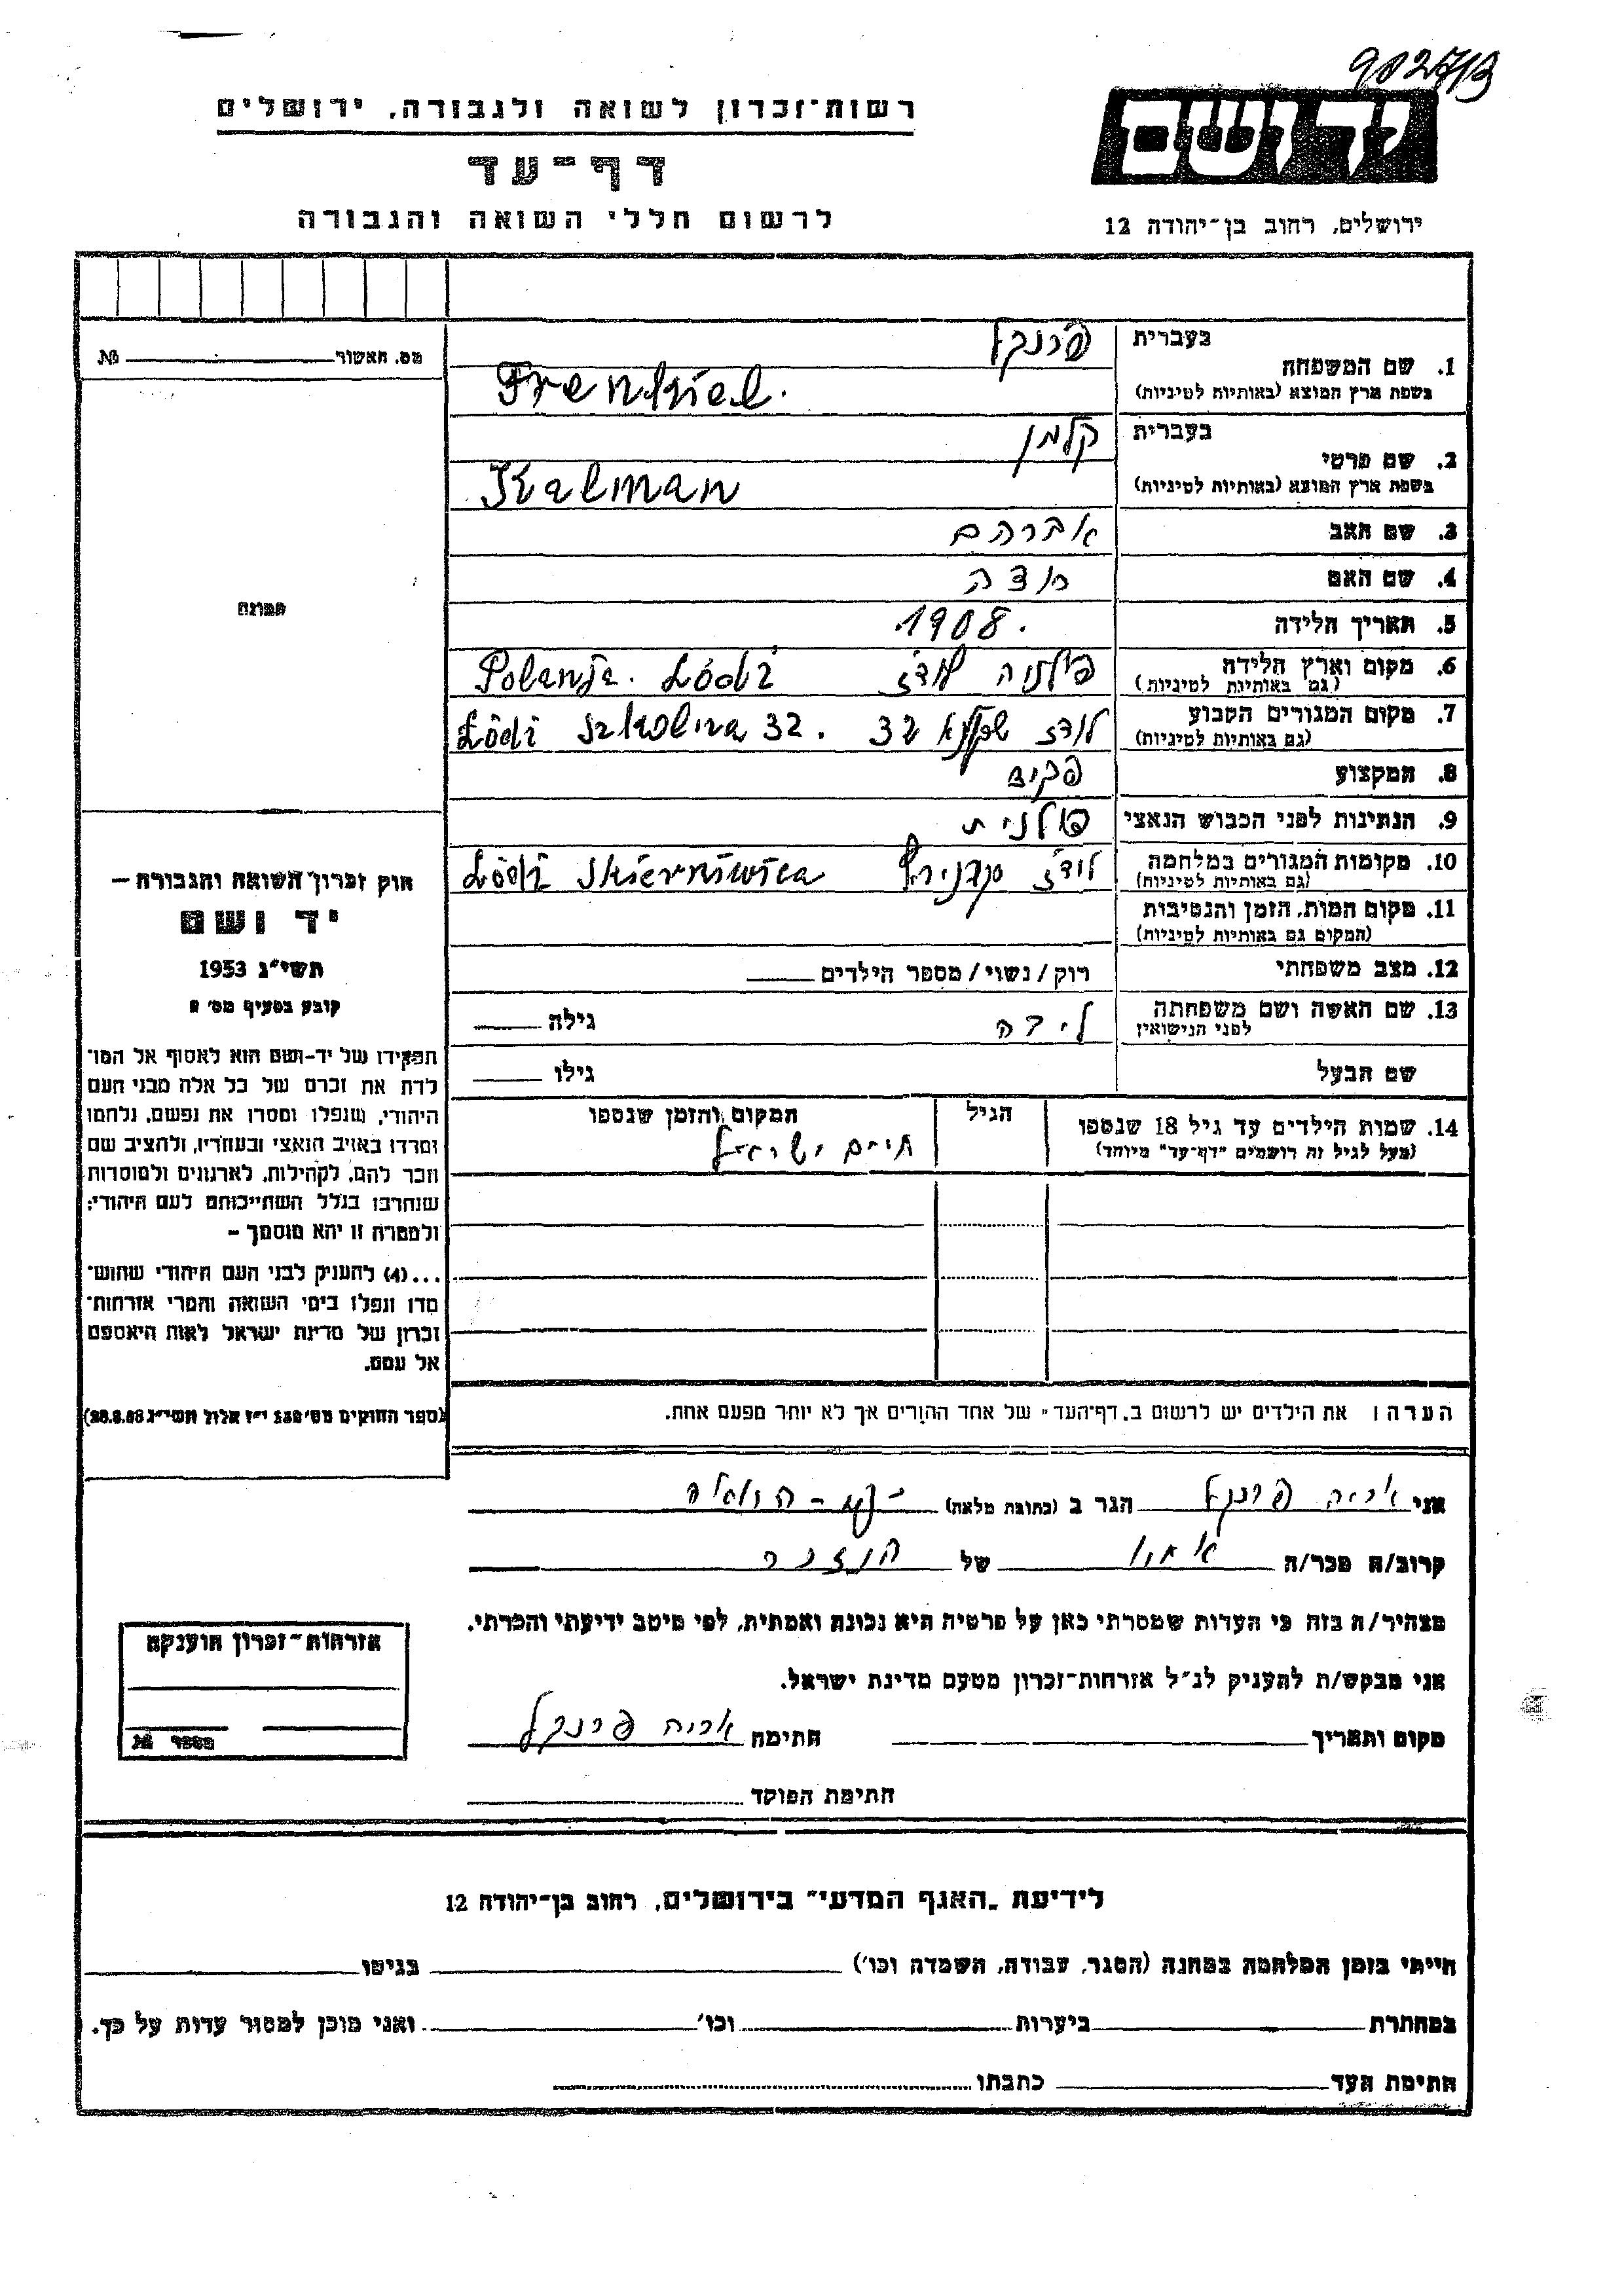 902713
יד ושם
ירושלים, רחוב בן־יהודה 12
רשות־זכרון לשואה ולגבורה, ירושלים
דף־עד
לרשום חללי השואה והגבורה
מס. האשור № 
1. שם המשפחה
בעברית
פרנקל
בשפת ארץ המוצא (באותיות לטיניות)
Frenkiel.
2. שם פרטי
בעברית
קלמן
בשפת ארץ המוצא (באותיות לטיניות)
Kalman
3. שם האב אברהם
4. שם האם
5. תאריך הלידה 1908.
6. מקום וארץ הלידה
(גם באותיות לטיניות)
לודז Polania. Łódź
7. מקום המגורים הקבוע
(גם באותיות לטיניות)
לודז 32 Łódź Szkolna 32.
8. המקצוע פקיד
9. הנתינות לפני הכבוש הנאצי פולנית
10. מקומות המגורים במלחמה
(גם באותיות לטיניות)
לודז Łódź Skierniwica
11. מקום המות, הזמן והנסיבות
(המקום גם באותיות לטיניות)
12. מצב משפחתי רוק/נשוי/מספר הילדים
13. שם האשה ושם משפחתה
לפני הנישואין
גילה
שם הבעל גילו
14. שמות הילדים עד גיל 18 שנספו
(מעל לגיל זה רושמים "דף־עד" מיוחד)
הגיל
המקום והזמן שנספו
חיים ישראל
הערה: את הילדים יש לרשום ב„דף־העד" של אחד ההורים אך לא יותר מפעם אחת.
תמונה
חוק זכרון השואה והגבורה —
יד ושם
תשי"ג 1953
קובע בסעיף מס' 2
תפקידו של יד-ושם הוא לאסוף אל המו־
לדת את זכרם של כל אלה מבני העם
היהודי, שנפלו ומסרו את נפשם, נלחמו
ומרדו באויב הנאצי ובעוזריו, ולהציב שם
וזכר להם, לקהילות, לארגונים ולמוסדות
שנחרבו בגלל השתייכותם לעם היהודי;
ולמטרה זו יהא מוסמך —
...(4) להעניק לבני העם היהודי שהוש־
מדו ונפלו בימי השואה והמרי אזרחות־
זכרון של מדינת ישראל לאות היאספם
אל עמם.
(ספר החוקים מס' 132 י"ז אלול תשי"ג 28.8.53)
אני אריה פרנקל הגר ב (כתובת מלאה)
קרוב/ה מכר/ה אחיו של
מצהיר/ה בזה כי העדות שמסרתי כאן על פרטיה היא נכונה ואמתית, לפי מיטב ידיעתי והכרתי.
אני מבקש/ת להעניק לנ"ל אזרחות־זכרון מטעם מדינת ישראל.
מקום ותאריך חתימה אריה פרנקל
חתימת הפוקד
אזרחות־זכרון הוענקה
מספר №
לידיעת „האגף המדעי" בירושלים, רחוב בן־יהודה 12
הייתי בזמן המלחמה במחנה (הסגר, עבודה, השמדה וכו') בגיטו
במחתרת ביערות וכו' ואני מוכן למסור עדות על כך.
חתימת העד כתבתו